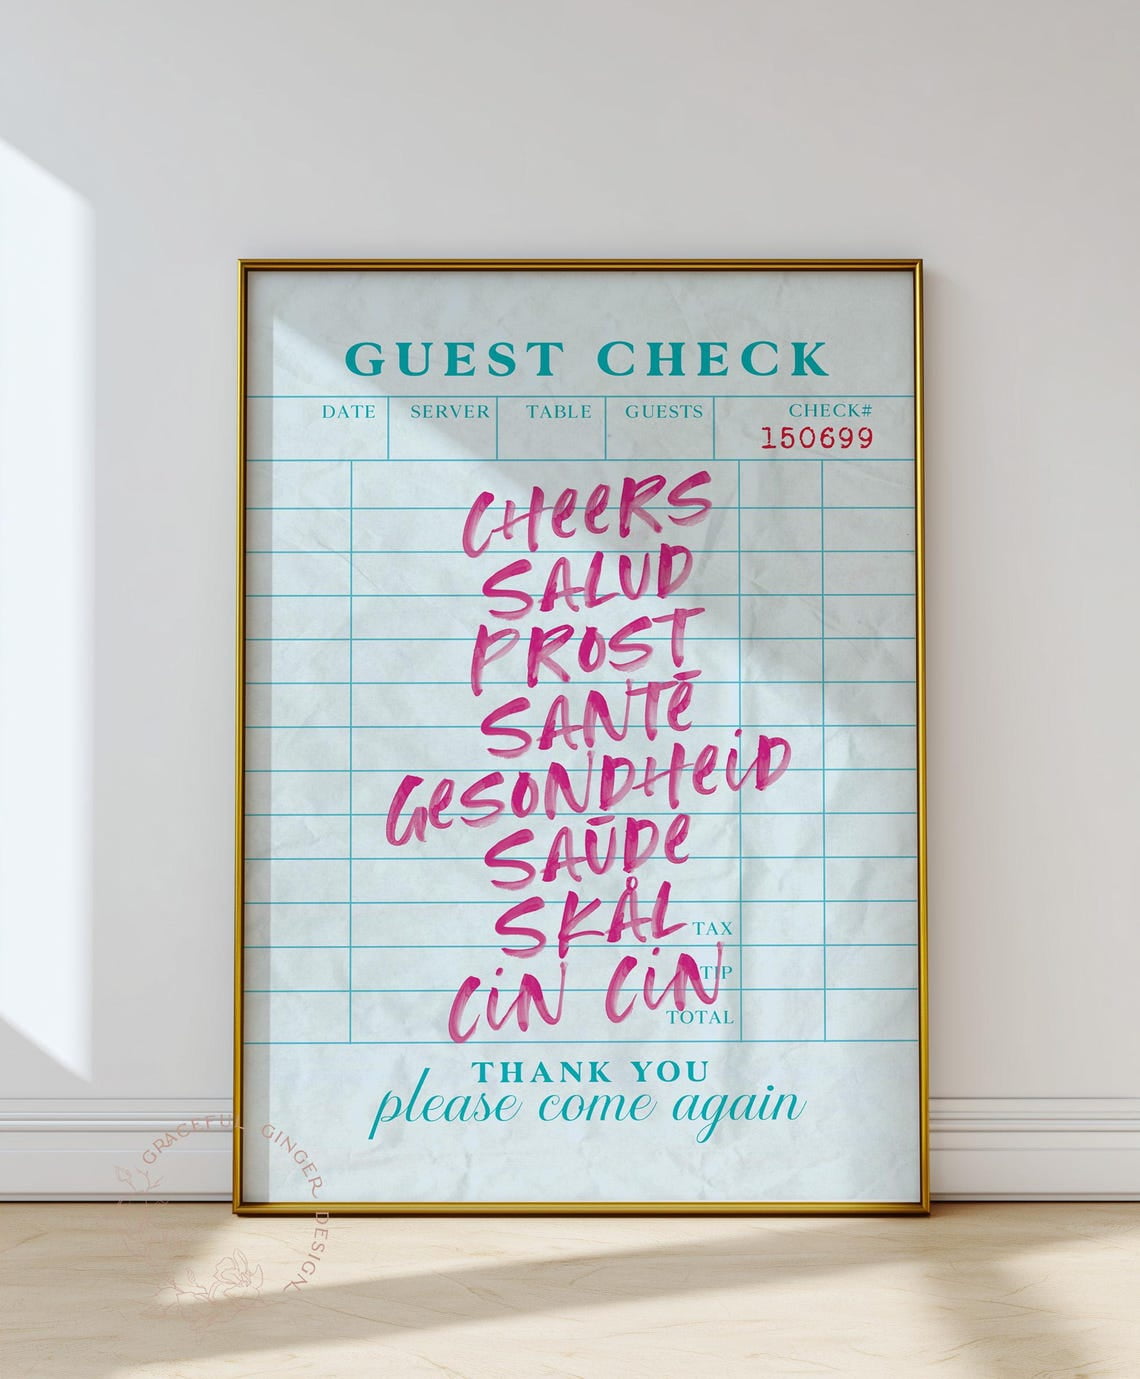 GUEST CHECK
DATE SERVER TABLE GUESTS CHECK#
150699
CHEERS
SALUD
PROST
SANTĒ
GESONDHEID
SAŪDE
SKÅL
TAX
CIN CIN
TIP
TOTAL
THANK YOU
please come again
GRACEFUL GINGER DESIGN